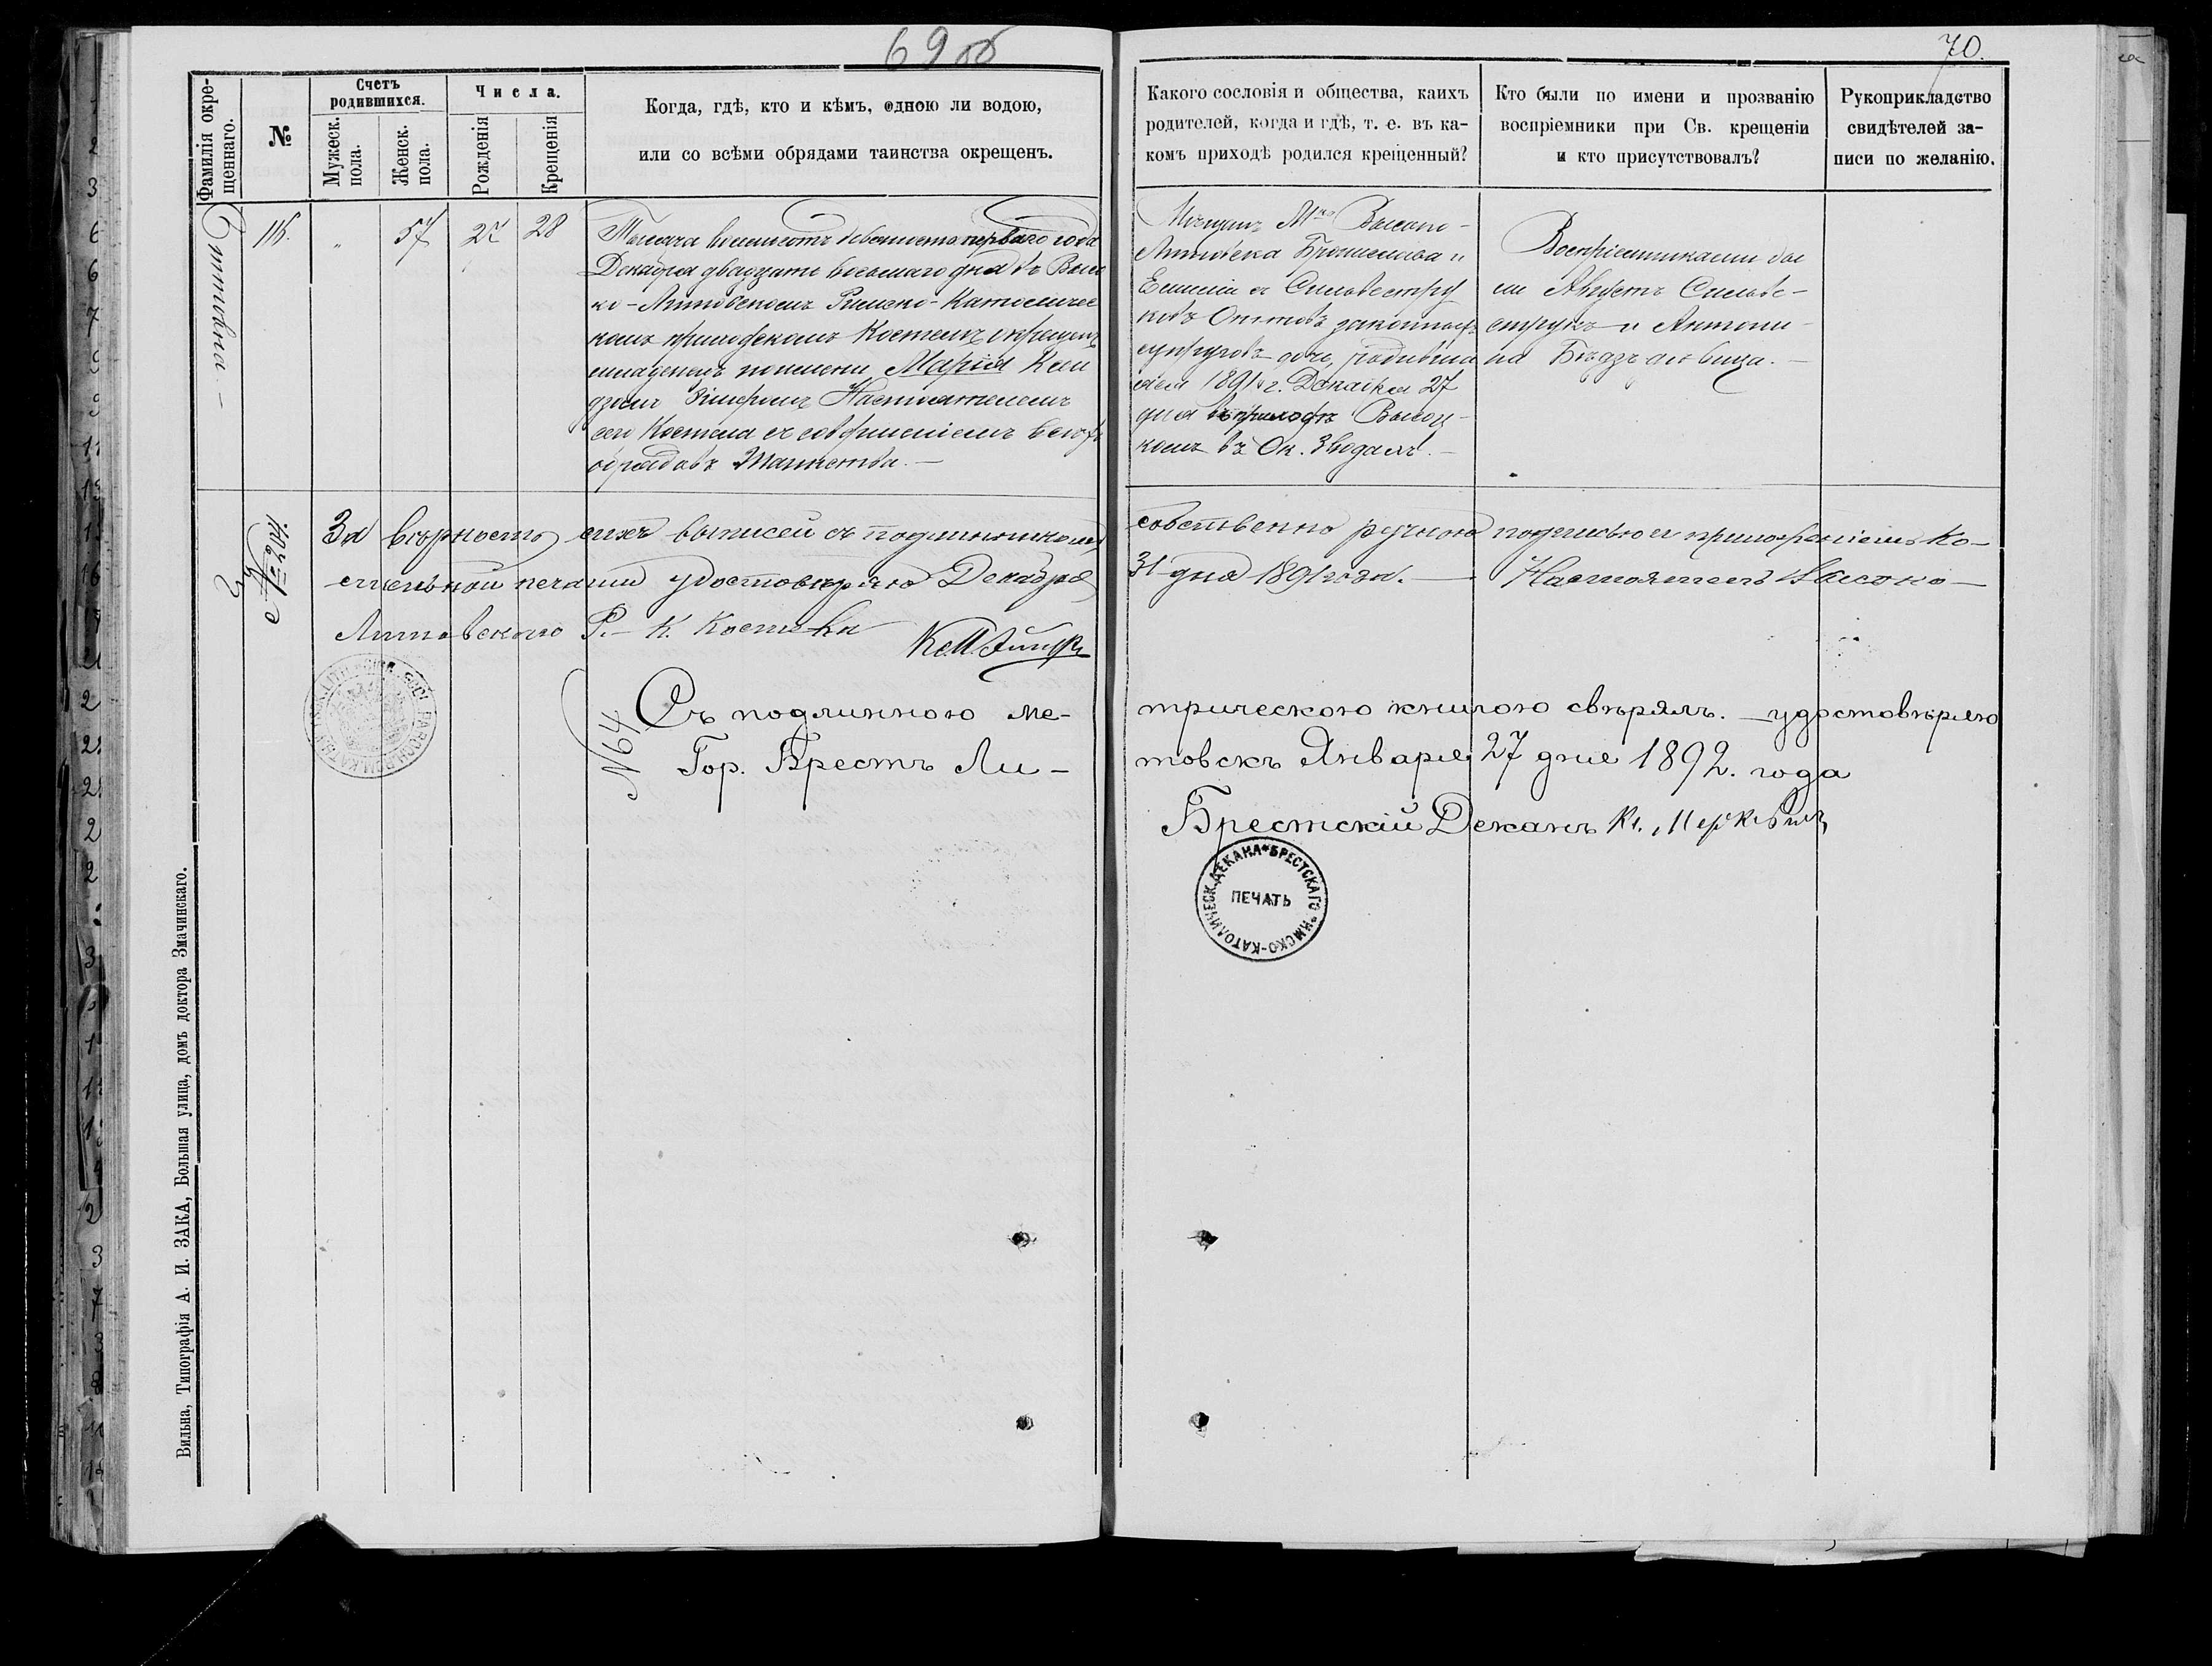 69 об
70.
Фамилія окре-
щеннаго.
№
Счетъ
родившихся.
Мужеск.
пола.
Женск.
пола.
Числа.
Рожденія
Крещенія
Когда, гдѣ, кто и кѣмъ, одною ли водою,
или со всѣми обрядами таинства окрещенъ.
Какого сословія и общества, каихъ
родителей, когда и гдѣ, т. е. въ ка-
комъ приходѣ родился крещенный?
Кто были по имени и прозванію
воспріемники при Св. крещеніи
и кто присутствовалъ?
Рукоприкладство
свидѣтелей за-
писи по желанію.
57
27
28
Тысяча восемсотъ девяносто перваго года
Декабря двадцать восьмаго дня въ Высо
ко-Литовскомъ Римско-Католичес
комъ приходскомъ Костелѣ окрещенъ
младенецъ по имени Марія Ксен
дзомъ Настоятелемъ
сего Костела съ совершеніемъ всѣхъ
обрядовъ Таинства.—
Мѣщанъ Мка Высоко-
Литовска Бронислава и
Емиліи съ Сильвестру
ковъ законныхъ
супруговъ дочь, родивша
яся 1891 г. Декабря 27
дня въ приходѣ Высоц-
комъ въ Ок.
Воспріемниками бы
ли Августъ Сильве-
струкъ и Антони-
на дѣвица.—
За № 204.
За вѣрность сихъ выписей съ подлинникомъ
собственно ручною подписью съ приложеніемъ Ко-
стельной печати удостовѣряю Декабря
31 дня 1891 года.— Настоятель Высоко-
Литовскаго Р.-К. Костела
№64
Съ подлинною ме-
трическою книгою свѣрялъ.— удостовѣряю
Гор. Брестъ Ли-
товскъ Января 27 дня 1892. года
Брестскій Деканъ Кс.
ДЕКАНА*БРЕСТСКАГО*РИМСКО-КАТОЛИЧЕСК.
ПЕЧАТЬ
Вильна, Типографія А. И. ЗАКА, Большая улица, домъ доктора Змачинскаго.